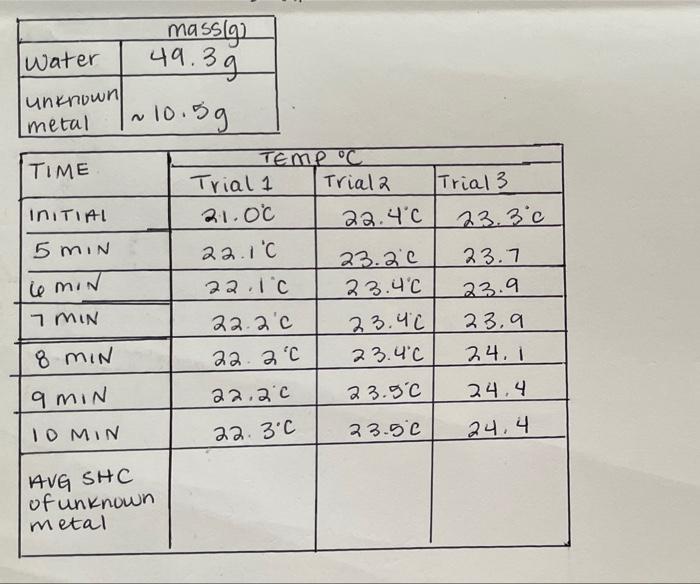 mass(g)
water 49.3g
unknown
metal ~10.5g
TIME TEMP °C
Trial 1 Trial 2 Trial 3
INITIAL 21.0°C 22.4°C 23.3°C
5 MIN 22.1°C 23.2°C 23.7
6 MIN 22.1°C 23.4°C 23.9
7 MIN 22.2°C 23.4°C 23.9
8 MIN 22.2°C 23.4°C 24.1
9 MIN 22.2°C 23.5°C 24.4
10 MIN 22.3°C 23.5°C 24.4
AVG SHC
of unknown
metal